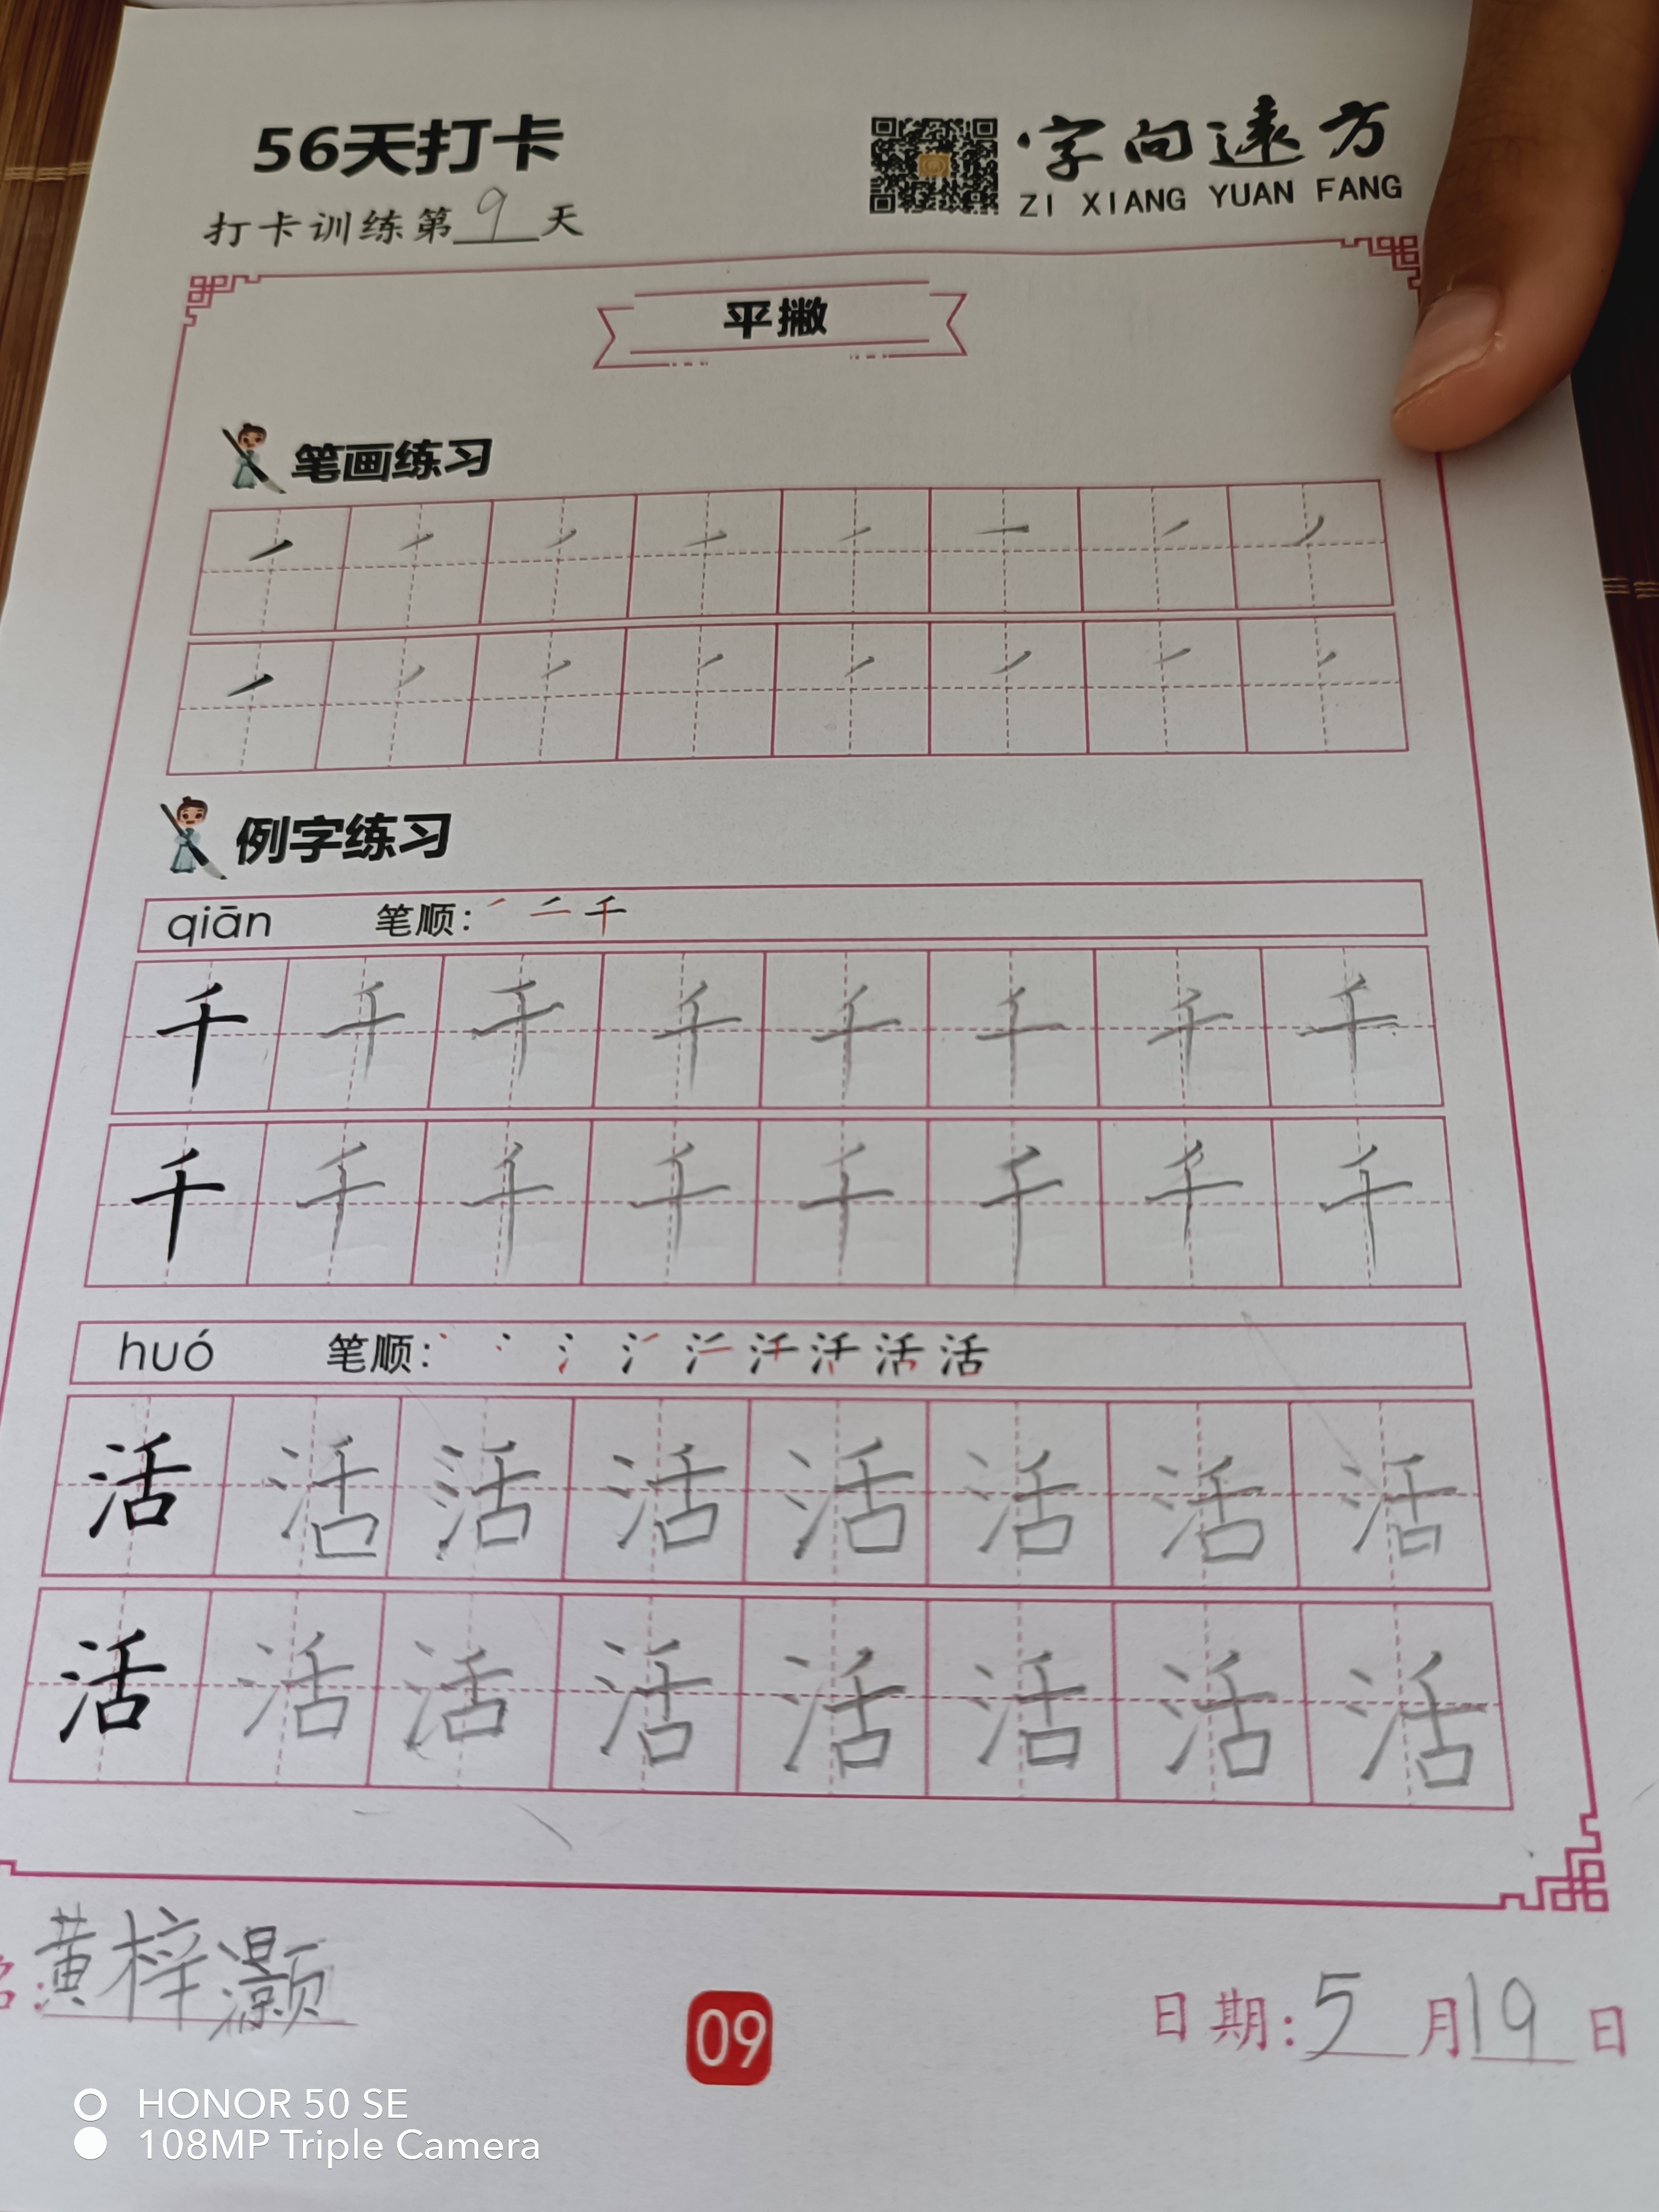 56天打卡
字向远方
ZI XIANG YUAN FANG
打卡训练第9天
平撇
笔画练习
例字练习
qiān 笔顺: 千
千 千 千 千 千 千 千 千
千 千 千 千 千 千 千 千
huó 笔顺: 活
活 活 活 活 活 活 活 活
活 活 活 活 活 活 活 活
名:黄梓灏
09
日期:5月19日
HONOR 50 SE
108MP Triple Camera